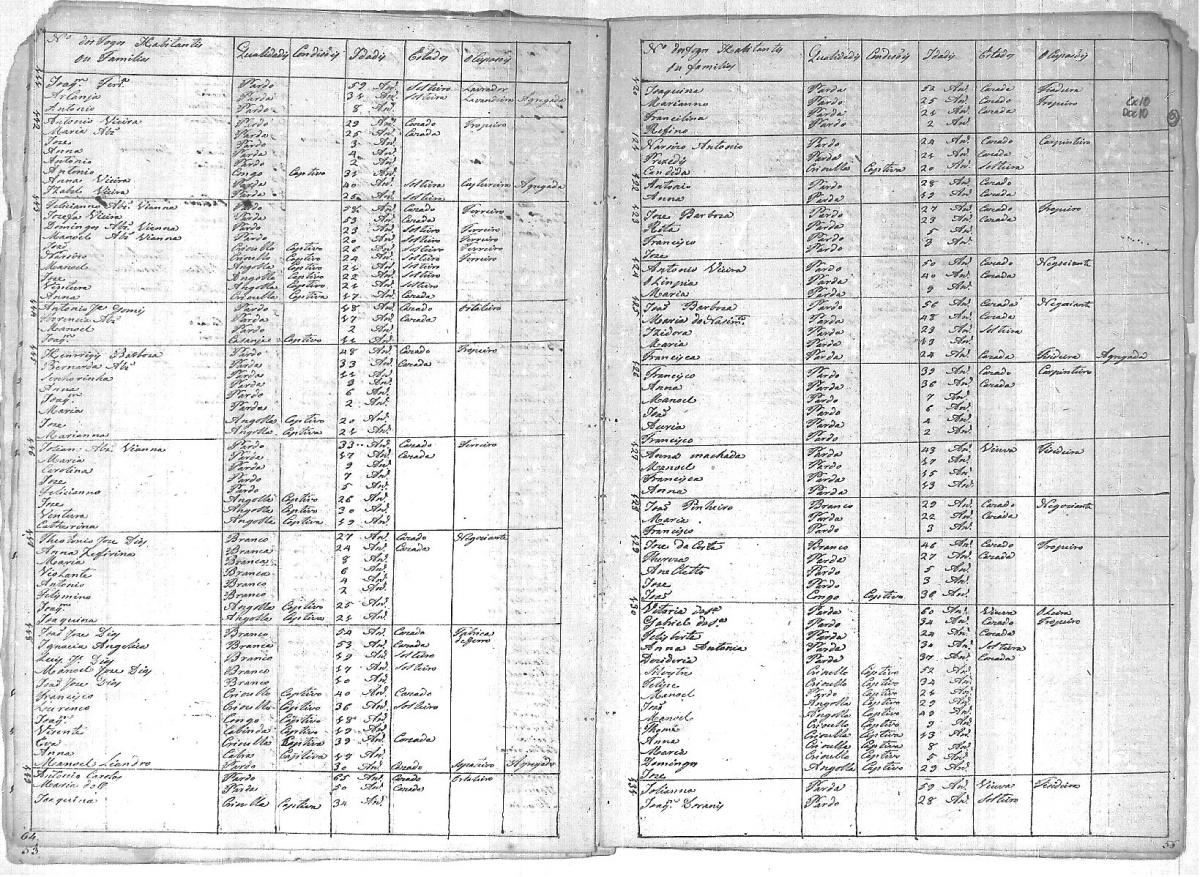 N.º dos Fogos Habitantes Qualidades Condisões Idades Estados Ocupasões
Ou Familias
111 Joaq.m Ferr.ª Pardo 59 An.s Solteiro Lavrador
Arlanja Parda 31 An.s Solteira Lavandeira Agregada
Antonio Pardo 8 An.s
112 Antonio Vieira Pardo 29 An.s Cazado Tropeiro
Maria Parda 25 An.s Cazada
Joze Pardo 3 An.s
Anna Parda 4 An.s
Antonio Pardo 2 An.s
Antonio Congo Captivo 31 An.s
Anna Vieira Parda 40 An.s Solteira Agregada
Izabel Vieira Parda 25 An.s Solteira
113 Feliciano Vianna Pardo An.s Cazado Ferreiro
Jozefa Vieira Parda 53 An.s Cazada
Domingos Vianna Pardo 23 An.s Solteiro Ferreiro
Manoel Vianna Pardo 20 An.s Solteiro Ferreiro
Joaõ Crioullo Captivo 26 An.s Solteiro Ferreiro
Crioullo Captivo 24 An.s Solteiro Ferreiro
Manoel Angolla Captivo 21 An.s Solteiro
Joze Angolla Captivo 22 An.s Solteiro
Ventura Angolla Captivo 21 An.s Solteiro
Anna Crioulla Captiva 17 An.s Cazada
Antonio Gomes Pardo 48 An.s Cazado
Parda 47 An.s Cazada
Manoel Pardo 2 An.s
Joaq.m Captivo 11 An.s
Barboza Pardo 48 An.s Cazado Tropeiro
Bernarda Parda 33 An.s Cazada
Senhorinha Parda 11 An.s
Anna Parda 9 An.s
Joaq.m Pardo 6 An.s
Maria Parda 2 An.s
Joze Angolla Captivo 20 An.s
Marianna Angolla Captiva 21 An.s
Vianna Pardo 33 An.s Cazado Ferreiro
Maria Parda 47 An.s Cazada
Carolina Parda 9 An.s
Joze Pardo 7 An.s
Felicianno Pardo 5 An.s
Joze Angolla Captivo 26 An.s
Ventura Angolla Captivo 30 An.s
Catharina Angolla Captiva 19 An.s
Theotonio Joze Dias Branco 27 An.s Cazado Negociante
Anna Zefirina Branca 24 An.s Cazada
Maria Branca 8 An.s
Violante Branca 6 An.s
Antonio Branco 4 An.s
Branco 2 An.s
Joaq.m Angolla Captivo 25 An.s
Joaquina Angolla Captiva 21 An.s
Joaõ Joze Dias Branco An.s Cazado Fabrica de Ferro
Ignacia Angelica Branca 53 An.s Cazada
Luis Dias Branco 19 An.s Solteiro
Manoel Joze Dias Branco 17 An.s Solteiro
Joaõ Joze Dias Branco 10 An.s
Francisco Crioullo Captivo 40 An.s Cazado
Lourenco Crioullo Captivo 36 An.s Solteiro
Joaq.m Congo Captivo 48 An.s
Vicente Cabinda Captivo 19 An.s
Eva Crioulla Captiva 39 An.s Cazada
Anna Captiva 19 An.s
Manoel Liandro Pardo 30 An.s Cazado Agregado
Antonio Pardo 65 An.s Cazado
Maria Parda 50 An.s Cazada
Joaquina Crioulla Captiva 34 An.s
64
53
N.º dos Fogos Habitantes Qualidades Condisões Idades Estados Ocupasões
Ou familias
Joaquina Parda 52 An.s Cazada Fiadeira
Marianno Pardo 25 An.s Cazado Tropeiro
Francelina Parda 21 An.s Cazada
Rofino Pardo 2 An.s
Cx10
Doc10
121 Narsizo Antonio Pardo 24 An.s Cazado Carpinteiro
Parda 21 An.s Cazada
Candida Crioulla Captiva 20 An.s Solteira
122 Antonio Pardo 28 An.s Cazado
Anna Parda 19 An.s Cazada
123 Joze Barboza Pardo 27 An.s Cazado Tropeiro
Ritta Parda 23 An.s Cazada
Francisco Pardo 5 An.s
Joze Pardo 3 An.s
124 Antonio Vieira Pardo 50 An.s Cazado Negociante
Olinpia Parda 40 An.s Cazada
Maria Parda 9 An.s
125 Joaõ Barboza Pardo 56 An.s Cazado Negociante
Maria do Nasim.to Parda 48 An.s Cazada
Izidora Parda 23 An.s Solteira
Maria Parda 19 An.s
Francisca Parda 24 An.s Cazada Fiadeira Agregada
126 Francisco Pardo 39 An.s Cazado Carpinteiro
Anna Parda 36 An.s Cazada
Manoel Pardo 7 An.s
Joaõ Pardo 6 An.s
Parda 4 An.s
Francisco Pardo 2 An.s
127 Anna machada Parda 43 An.s Viuva Fiadeira
Manoel Pardo 17 An.s
Francisca Parda 15 An.s
Anna Parda 13 An.s
128 Joaõ Pinheiro Branco 29 An.s Cazado Negociante
Maria Parda 22 An.s Cazada
Francisco Pardo 3 An.s
129 Joze da Costa Branco 46 An.s Cazado Tropeiro
Thereza Parda 27 An.s Cazada
Anacleto Pardo 5 An.s
Joze Pardo 3 An.s
Joaõ Congo Captivo 36 An.s
130 Parda 60 An.s Viuva
Gabriel Pardo 34 An.s Cazado Tropeiro
Felisbirta Parda 24 An.s Cazada
Anna Antonia Parda 30 An.s Solteira
Dezideria Parda 37 An.s Cazada
Silvestre Crioullo Captivo 52 An.s
Felipe Crioullo Captivo 34 An.s
Manoel Pardo Captivo 21 An.s
Joaõ Angolla Captivo 29 An.s
Manoel Angolla Captivo 49 An.s
Thomé Crioullo Captivo 9 An.s
Anna Crioulla Captiva 13 An.s
Maria Crioulla Captiva 8 An.s
Domingos Crioullo Captivo 5 An.s
Joze Angolla Captivo 23 An.s
131 Julianna Parda 59 An.s Viuva Fiadeira
Joaq.m Pardo 28 An.s Solteiro